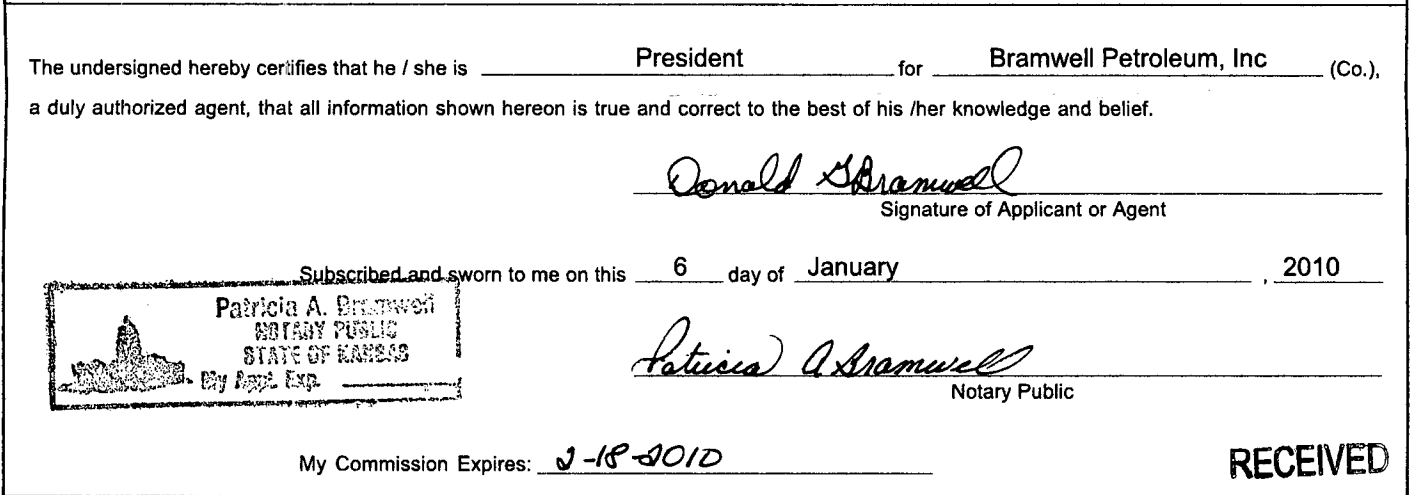 The undersigned hereby certifies that he / she is President for Bramwell Petroleum, Inc (Co.),
a duly authorized agent, that all information shown hereon is true and correct to the best of his /her knowledge and belief.
Donald G Bramwell
Signature of Applicant or Agent
Subscribed and sworn to me on this 6 day of January , 2010
Patricia A. Bramwell
NOTARY PUBLIC
STATE OF KANSAS
My Appt. Exp.
Patricia A Bramwell
Notary Public
My Commission Expires: 2-18-2010
RECEIVED